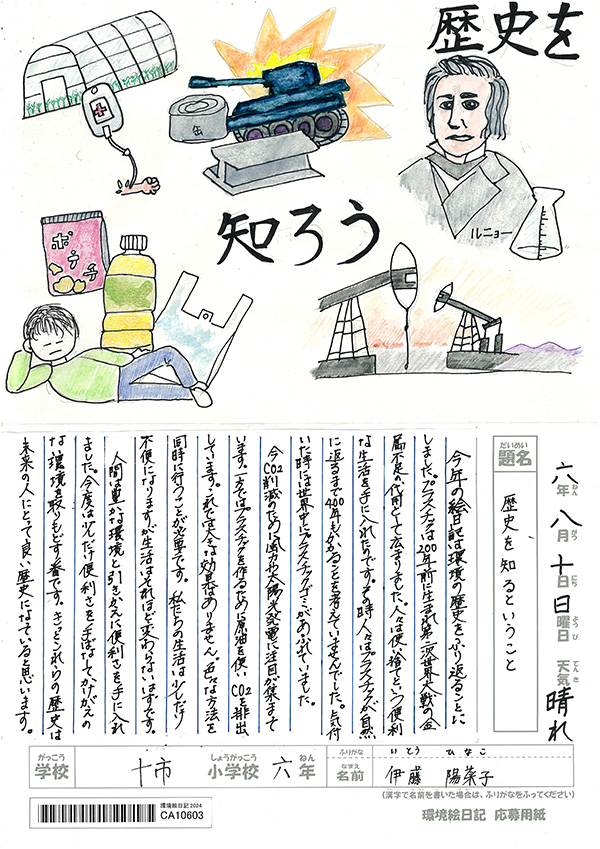 歴史を
知ろう
缶
ルニョー
ポテチ
六年 八月 十日 日曜日 天気 晴れ
ねん がつ にち ようび てんき
だいめい
題名
歴史を知るということ
今年の絵日記は環境の歴史をふり返ることに
しました。プラスチックは200年前に生まれ第二次世界大戦の金
属不足の代用として広まりました。人々は使い捨てという便利
な生活を手に入れたのです。その時人々はプラスチックが自然
に返るまで400年もかかることを考えていませんでした。気付
いた時には世界中にプラスチックゴミがあふれていました。
今CO2削減のために風力や太陽光発電に注目が集まって
います。一方ではプラスチックを作るために原油を使いCO2を排出
しています。これでは完全な効果はありません。色々な方法を
同時に行うことが必要です。私たちの生活は少しだけ
不便になりますが生活はそれほど変わらないはずです。
人間は豊かな環境と引きかえに便利さを手に入れ
ました。今度は少しだけ便利さを手ばなしてかけがえの
ない環境を取りもどす番です。きっとこれらの歴史は
未来の人にとって良い歴史になっていると思います。
がっこう しょうがっこう ねん
学校 十市 小学校 六年
ふりがな いとう ひなこ
なまえ
名前 伊藤 陽菜子
(漢字で名前を書いた場合は、ふりがなをふってください)
環境絵日記2024
CA10603
環境絵日記 応募用紙